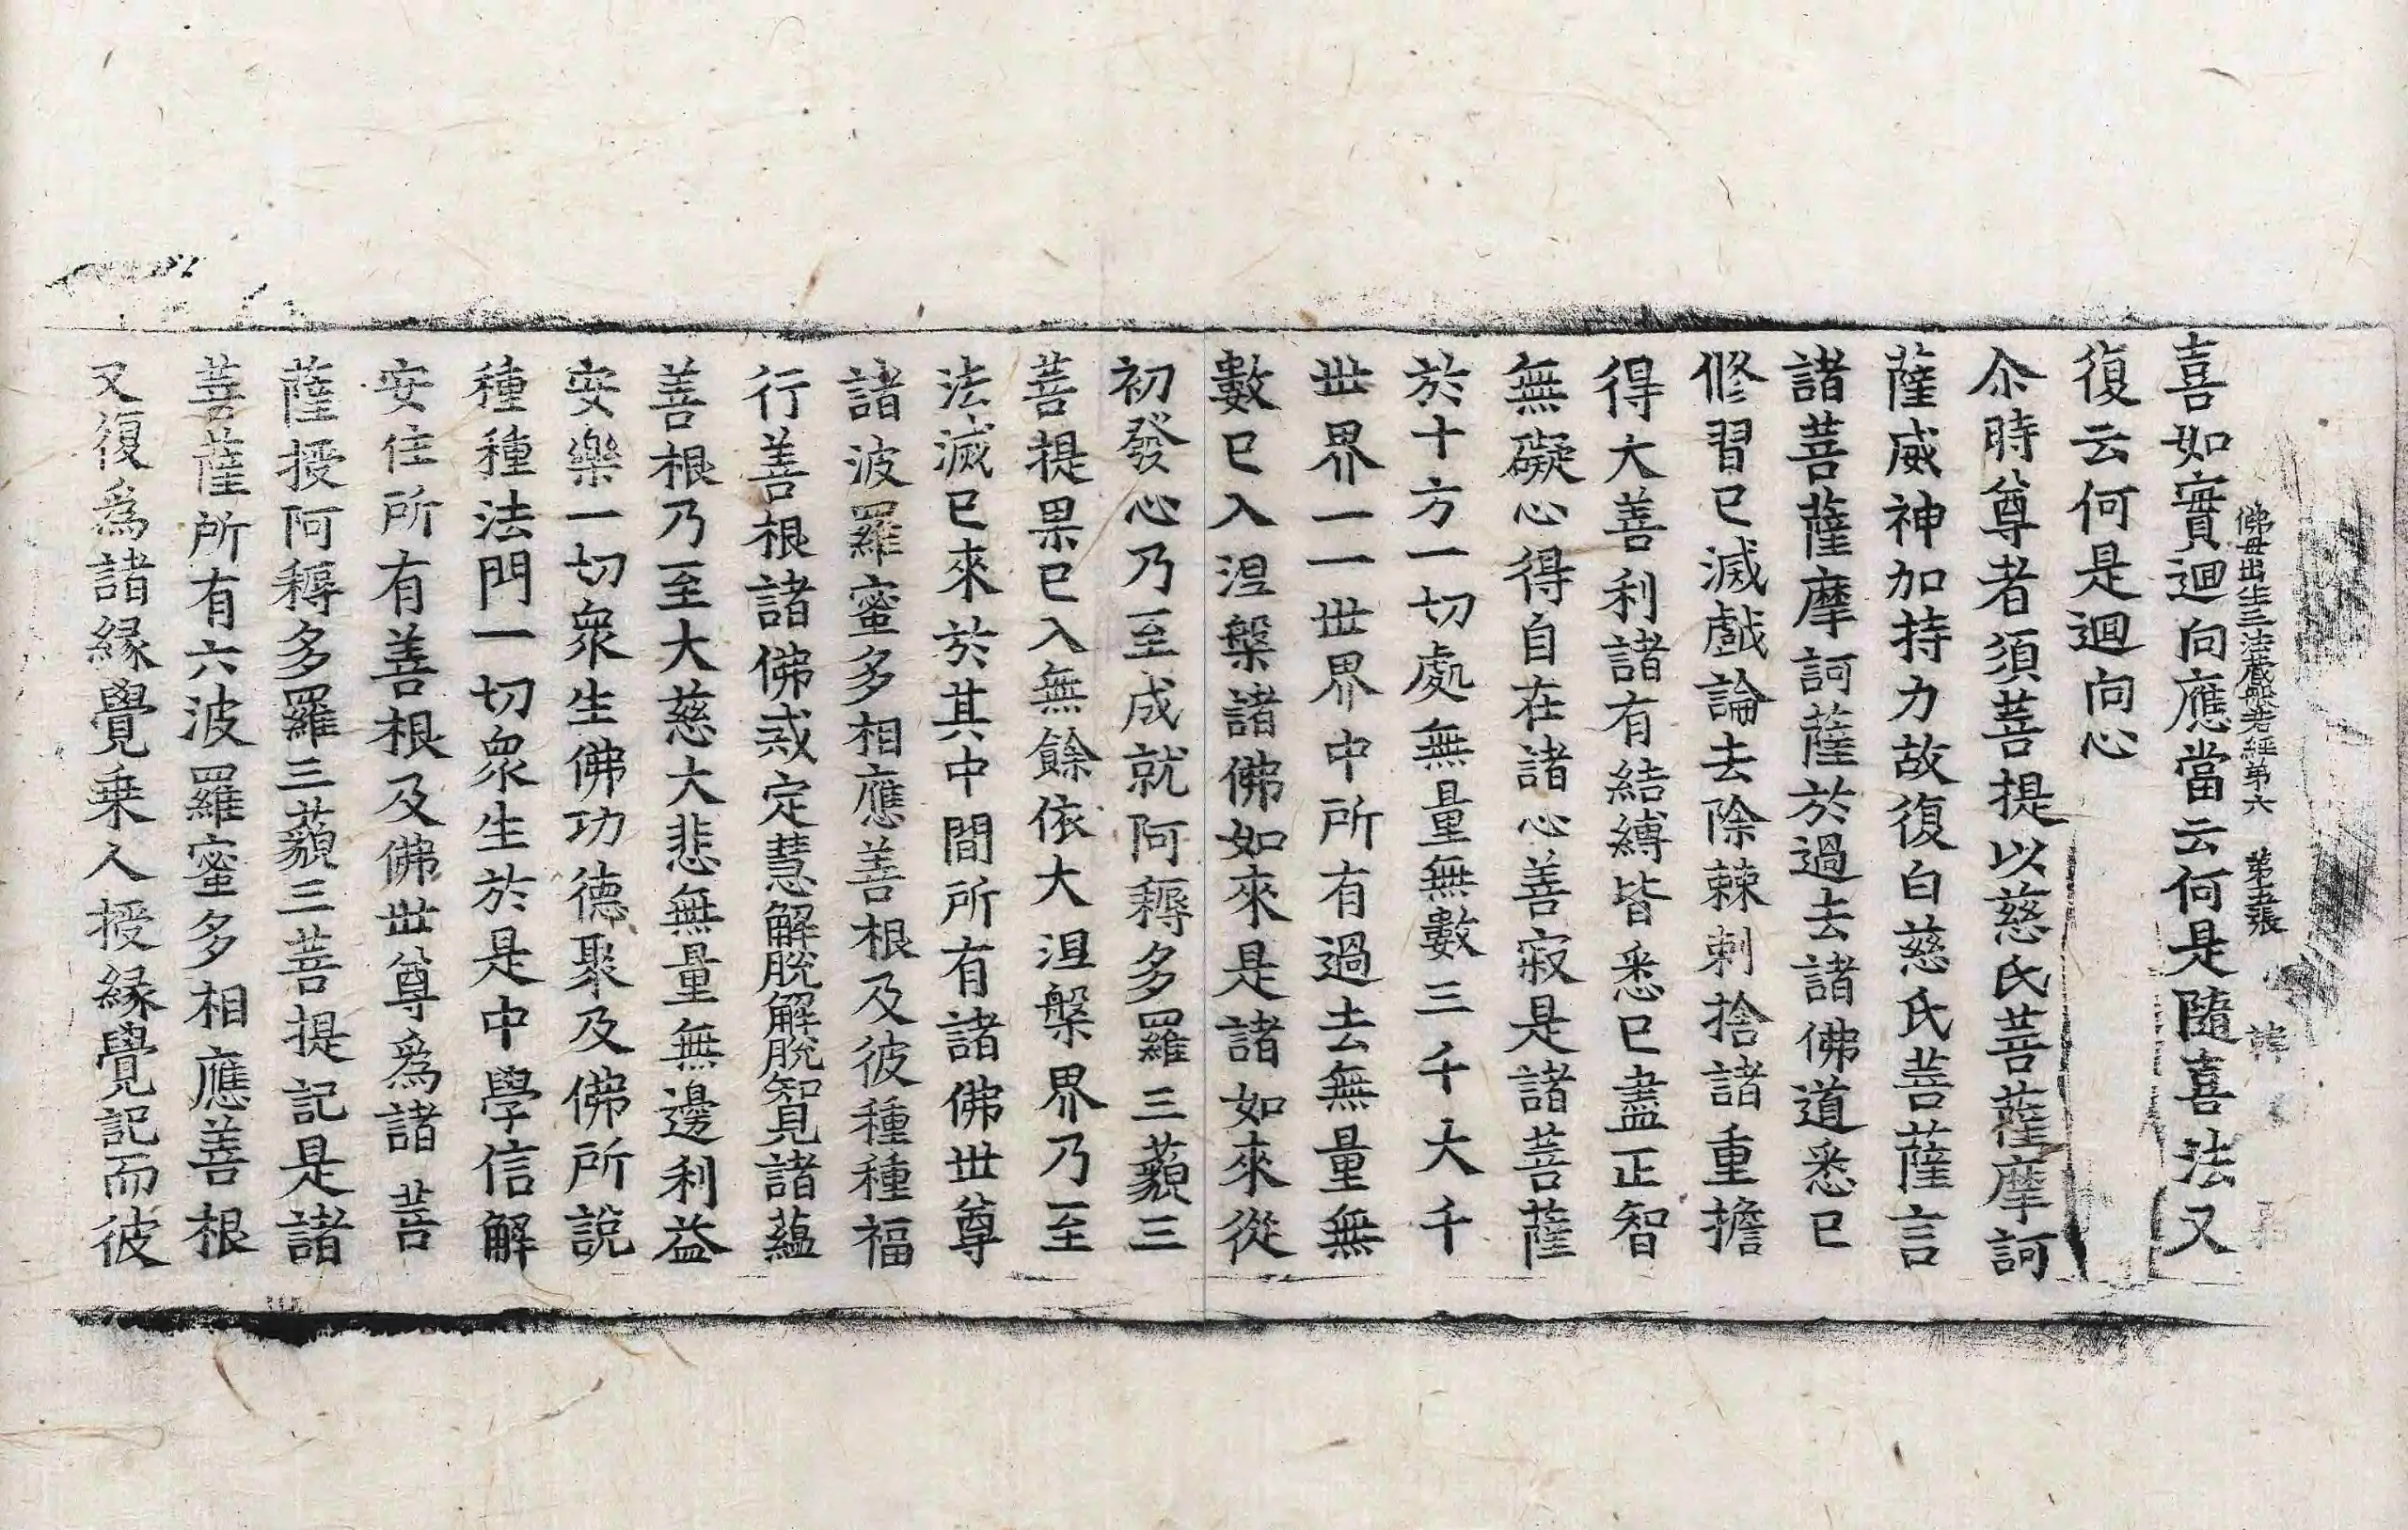 佛母出生三法藏般若經第六 第五張 韓
喜如實迴向應當云何是隨喜法又
復云何是迴向心
尒時尊者須菩提以慈氏菩薩摩訶
薩威神加持力故復白慈氏菩薩言
諸菩薩摩訶薩於過去諸佛道悉已
修習已滅戲論去除棘刺捨諸重擔
得大善利諸有結縛皆悉已盡正智
無礙心得自在諸心善寂是諸菩薩
於十方一切處無量無數三千大千
世界一一世界中所有過去無量無
數已入涅槃諸佛如來是諸如來從
初發心乃至成就阿耨多羅三藐三
菩提果已入無餘依大涅槃界乃至
法滅已來於其中間所有諸佛世尊
諸波羅蜜多相應善根及彼種種福
行善根諸佛戒定慧解脫解脫智見諸蘊
善根乃至大慈大悲無量無邊利益
安樂一切眾生佛功德聚及佛所說
種種法門一切眾生於是中學信解
安住所有善根及佛世尊為諸菩
薩授阿耨多羅三藐三菩提記是諸
菩薩所有六波羅蜜多相應善根
又復為諸緣覺乘人授緣覺記而彼